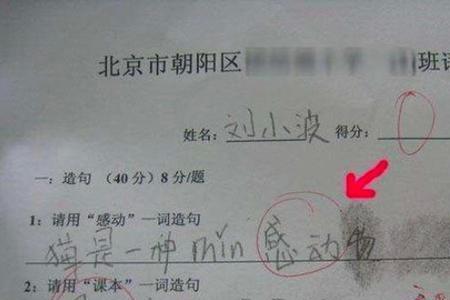 北京市朝阳区 班
姓名：刘小波 得分：0
一：造句（40分）8分/题
1：请用“感动”一词造句
猫是一种min感动物
2：请用“课本”一词造句